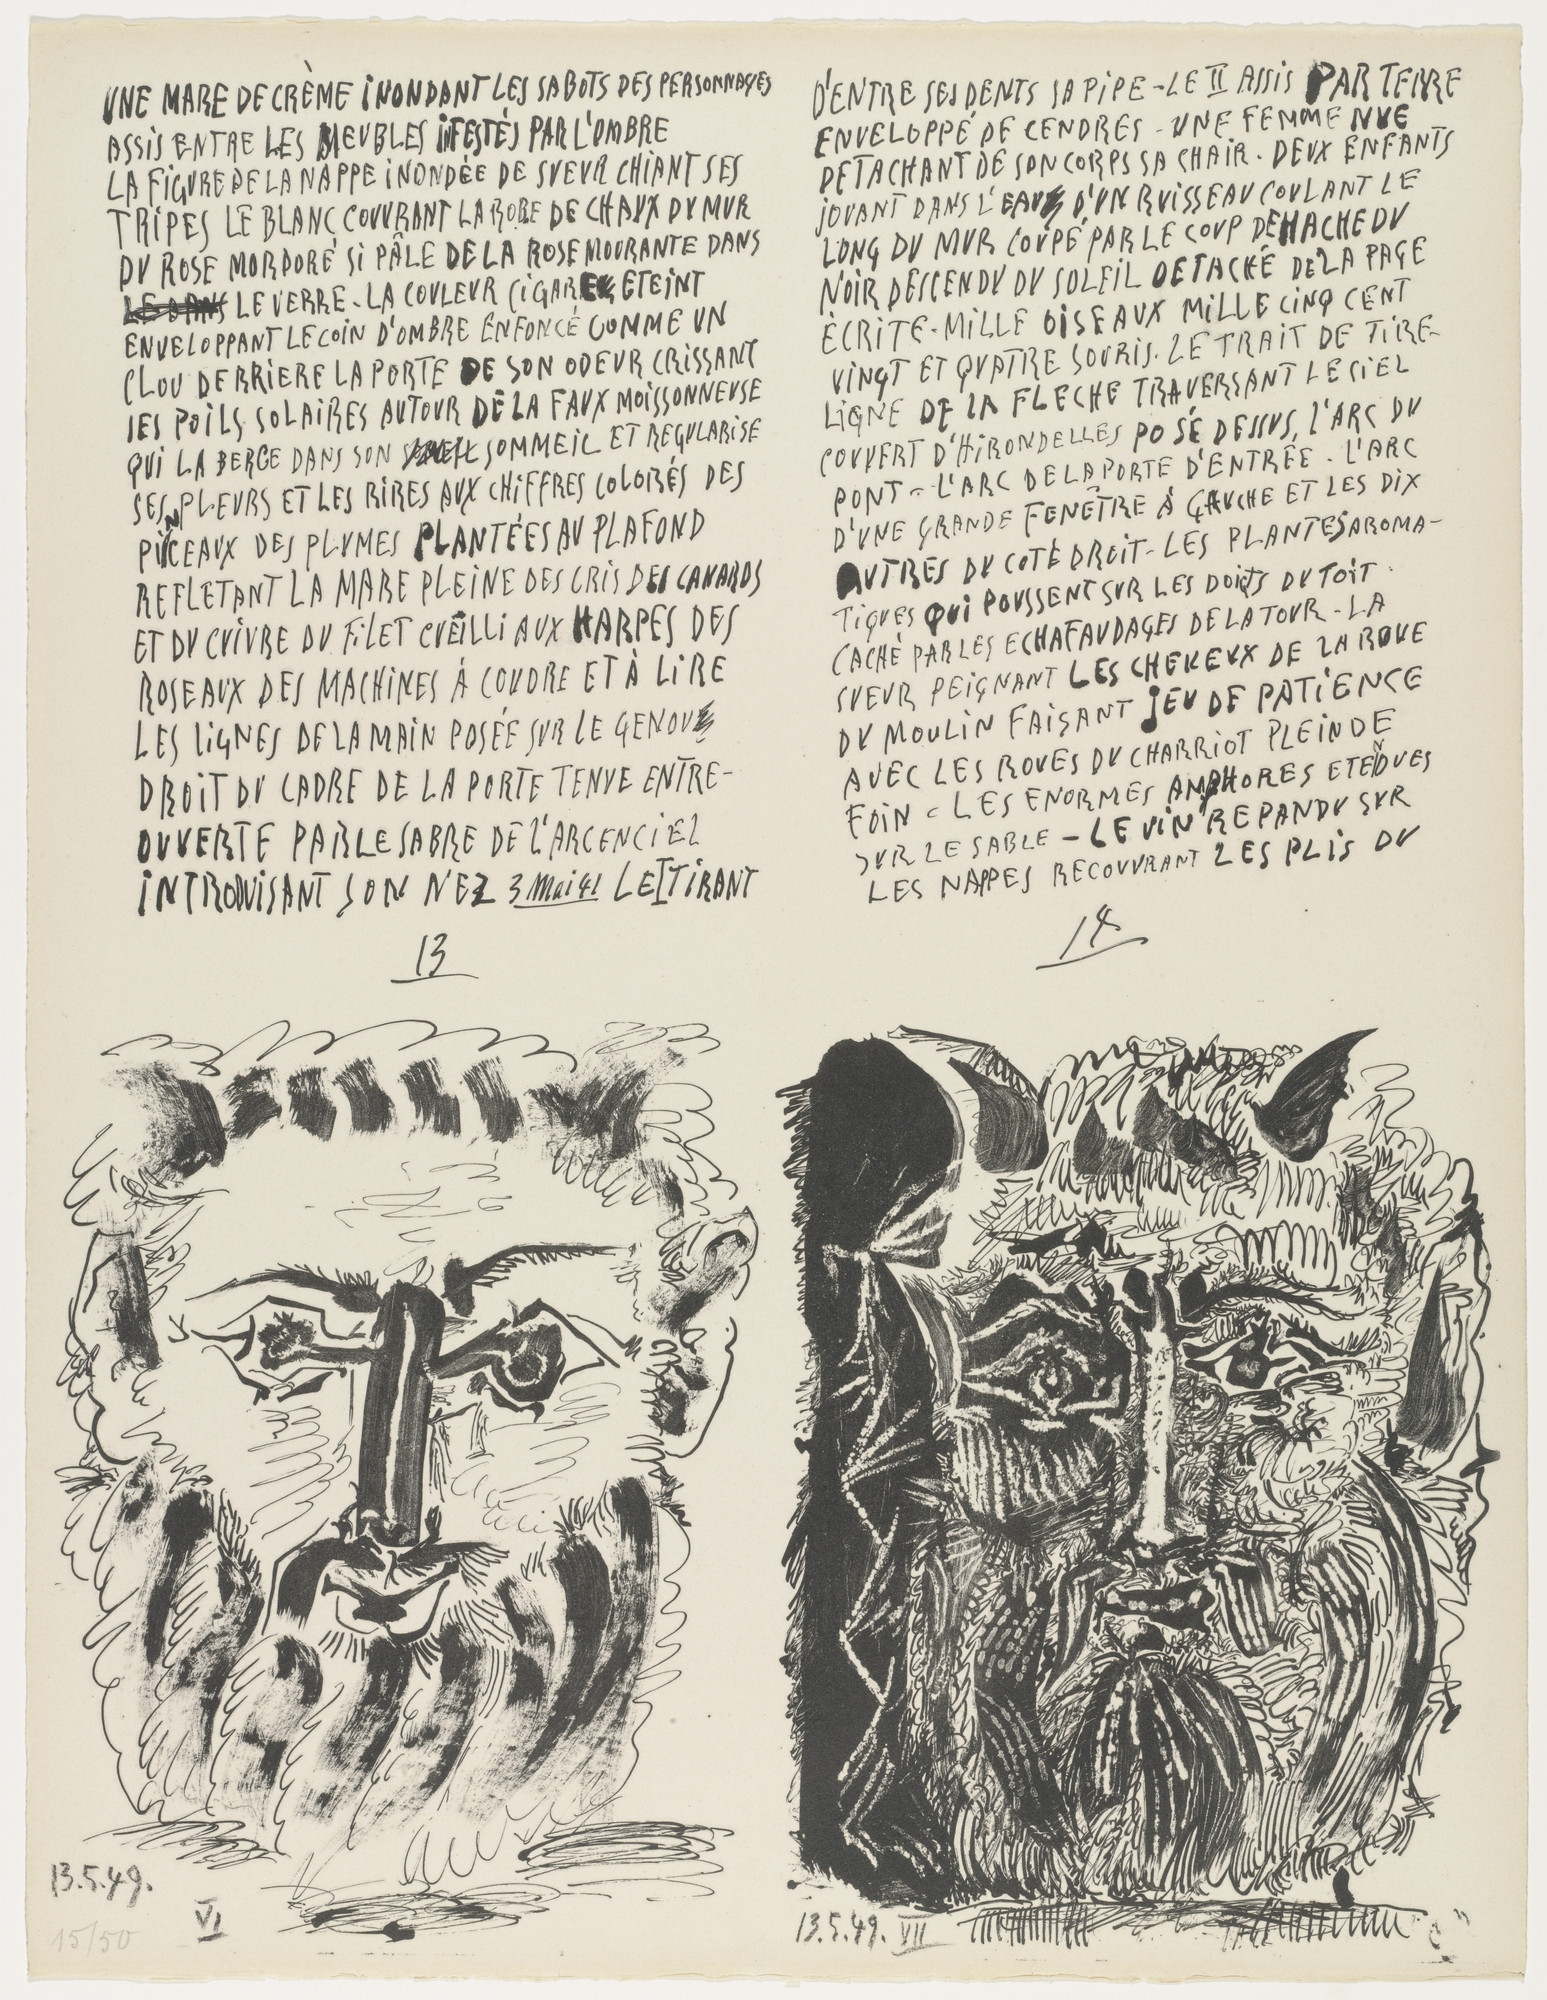 UNE MARE DE CRÈME INONDANT LES SABOTS DES PERSONNAGES
ASSIS ENTRE LES MEUBLES INFESTÉS PAR L'OMBRE
LA FIGURE DE LA NAPPE INONDÉE DE SUEUR CHIANT SES
TRIPES LE BLANC COUVRANT LA ROBE DE CHAUX DU MUR
DU ROSE MORDORÉ SI PÂLE DE LA ROSE MOURANTE DANS
LE DANS LE VERRE - LA COULEUR CIGARE ETEINT
ENVELOPPANT LE COIN D'OMBRE ENFONCÉ COMME UN
CLOU DERRIERE LA PORTE DE SON ODEUR CRISSANT
LES POILS SOLAIRES AUTOUR DE LA FAUX MOISSONNEUSE
QUI LA BERCE DANS SON SOMMEIL ET REGULARISE
SES PLEURS ET LES RIRES AUX CHIFFRES COLORÉS DES
PINCEAUX DES PLUMES PLANTÉES AU PLAFOND
REFLETANT LA MARE PLEINE DES CRIS DES CANARDS
ET DU CUIVRE DU FILET CUEILLI AUX HARPES DES
ROSEAUX DES MACHINES À COUDRE ET À LIRE
LES LIGNES DE LA MAIN POSÉE SUR LE GENOU
DROIT DU CADRE DE LA PORTE TENUE ENTRE-
OUVERTE PAR LE SABRE DE L'ARC EN CIEL
INTRODUISANT SON NEZ 3 Mai 41 LE I TIRANT
13
D'ENTRE SES DENTS SA PIPE - LE II ASSIS PAR TERRE
ENVELOPPÉ DE CENDRES - UNE FEMME NUE
DETACHANT DE SON CORPS SA CHAIR - DEUX ENFANTS
JOUANT DANS L'EAU D'UN RUISSEAU COULANT LE
LONG DU MUR COUPÉ PAR LE COUP DE HACHE DU
NOIR DESCENDU DU SOLEIL DETACHÉ DE LA PAGE
ÉCRITE - MILLE OISEAUX MILLE CINQ CENT
VINGT ET QUATRE SOURIS. LE TRAIT DE TIRE-
LIGNE DE LA FLECHE TRAVERSANT LE CIEL
COUVERT D'HIRONDELLES POSÉ DESSUS, L'ARC DU
PONT - L'ARC DE LA PORTE D'ENTRÉE - L'ARC
D'UNE GRANDE FENETRE À GAUCHE ET LES DIX
AUTRES DU COTÉ DROIT - LES PLANTES AROMA-
TIQUES QUI POUSSENT SUR LES DOIGTS DU TOIT
CACHÉ PAR LES ECHAFAUDAGES DE LA TOUR - LA
SUEUR PEIGNANT LES CHEVEUX DE LA ROUE
DU MOULIN FAISANT JEU DE PATIENCE
AVEC LES ROUES DU CHARRIOT PLEIN DE
FOIN - LES ENORMES AMPHORES ETENDUES
SUR LE SABLE - LE VIN REPANDU SUR
LES NAPPES RECOUVRANT LES PLIS DU
14
13.5.49.
VI
15/50
13.5.49. VII